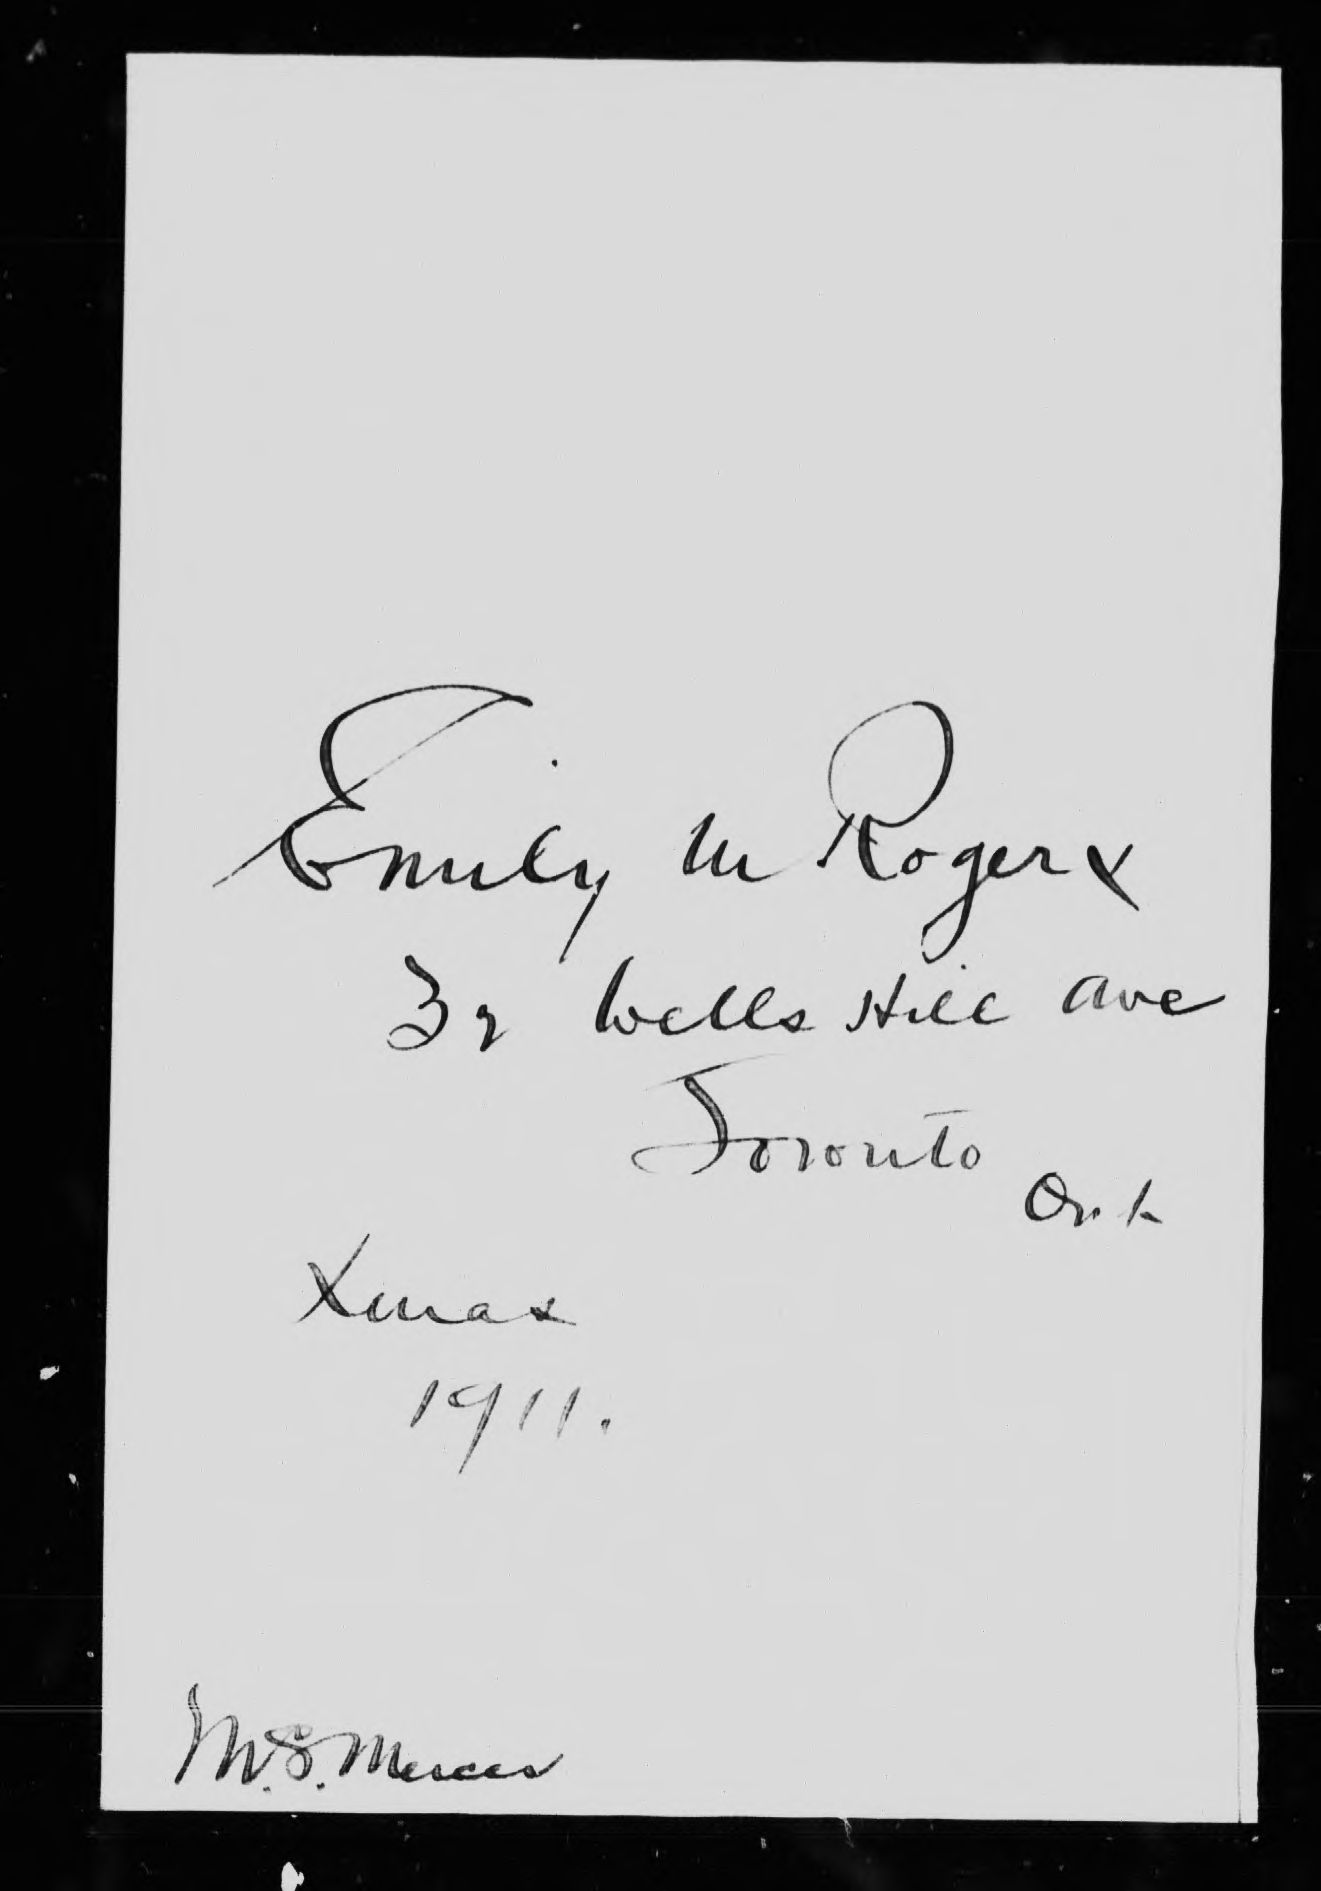 Emily M Rogers
32 Wells Hill Ave
Toronto
Ont
Xmas
1911.
M. S. Mercer